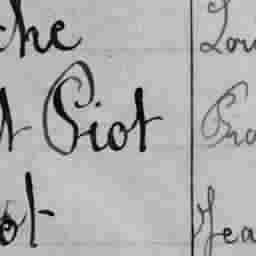 che Lou
t Piot Pro
ot Jea